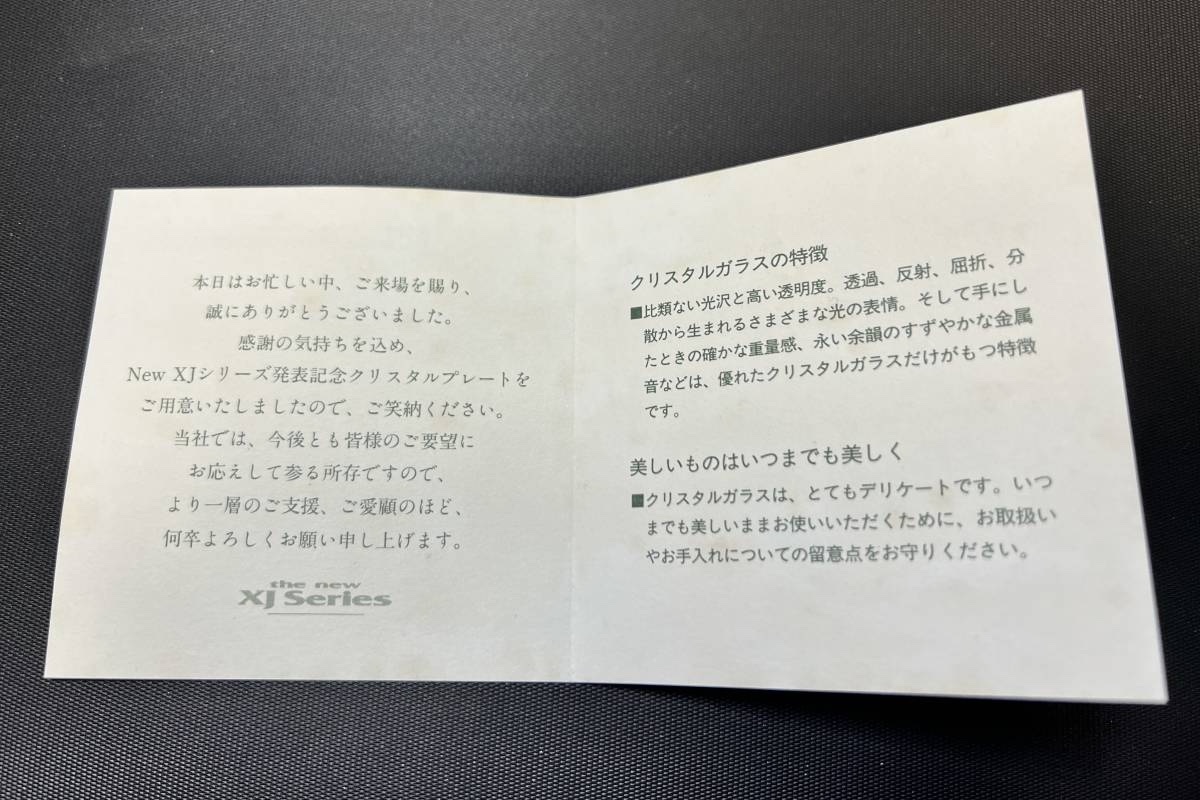 本日はお忙しい中、ご来場を賜り、
誠にありがとうございました。
感謝の気持ちを込め、
New XJシリーズ発表記念クリスタルプレートを
ご用意いたしましたので、ご笑納ください。
当社では、今後とも皆様のご要望に
お応えして参る所存ですので、
より一層のご支援、ご愛顧のほど、
何卒よろしくお願い申し上げます。
the new
XJ Series
クリスタルガラスの特徴
■比類ない光沢と高い透明度。透過、反射、屈折、分
散から生まれるさまざまな光の表情。そして手にし
たときの確かな重量感、永い余韻のすずやかな金属
音などは、優れたクリスタルガラスだけがもつ特徴
です。
美しいものはいつまでも美しく
■クリスタルガラスは、とてもデリケートです。いつ
までも美しいままお使いいただくために、お取扱い
やお手入れについての留意点をお守りください。